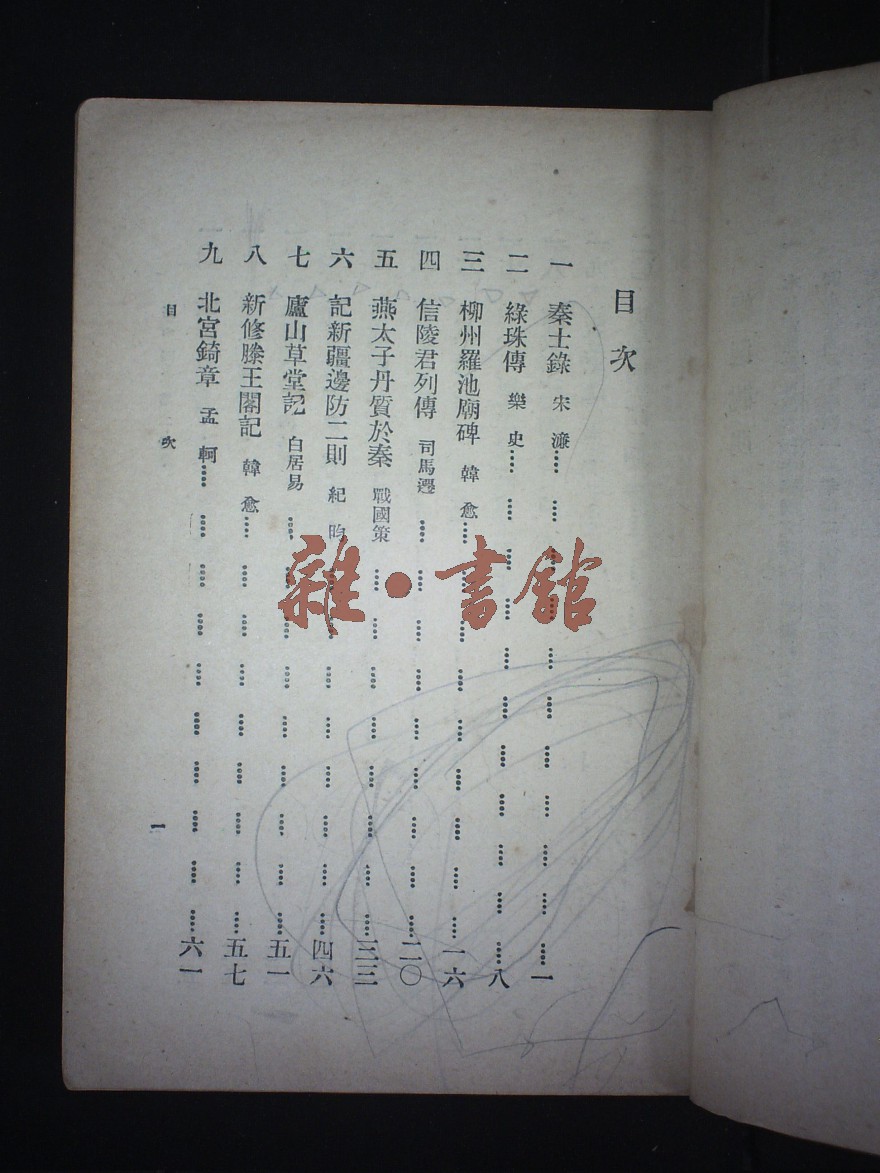 目次
一 秦士錄 宋濂 一
二 綠珠傳 樂史 八
三 柳州羅池廟碑 韓愈 一六
四 信陵君列傳 司馬遷 二〇
五 燕太子丹質於秦 戰國策 三三
六 記新疆邊防二則 紀昀 四六
七 廬山草堂記 白居易 五一
八 新修滕王閣記 韓愈 五七
九 北宮錡章 孟軻 六一
目次
一
雜·書館